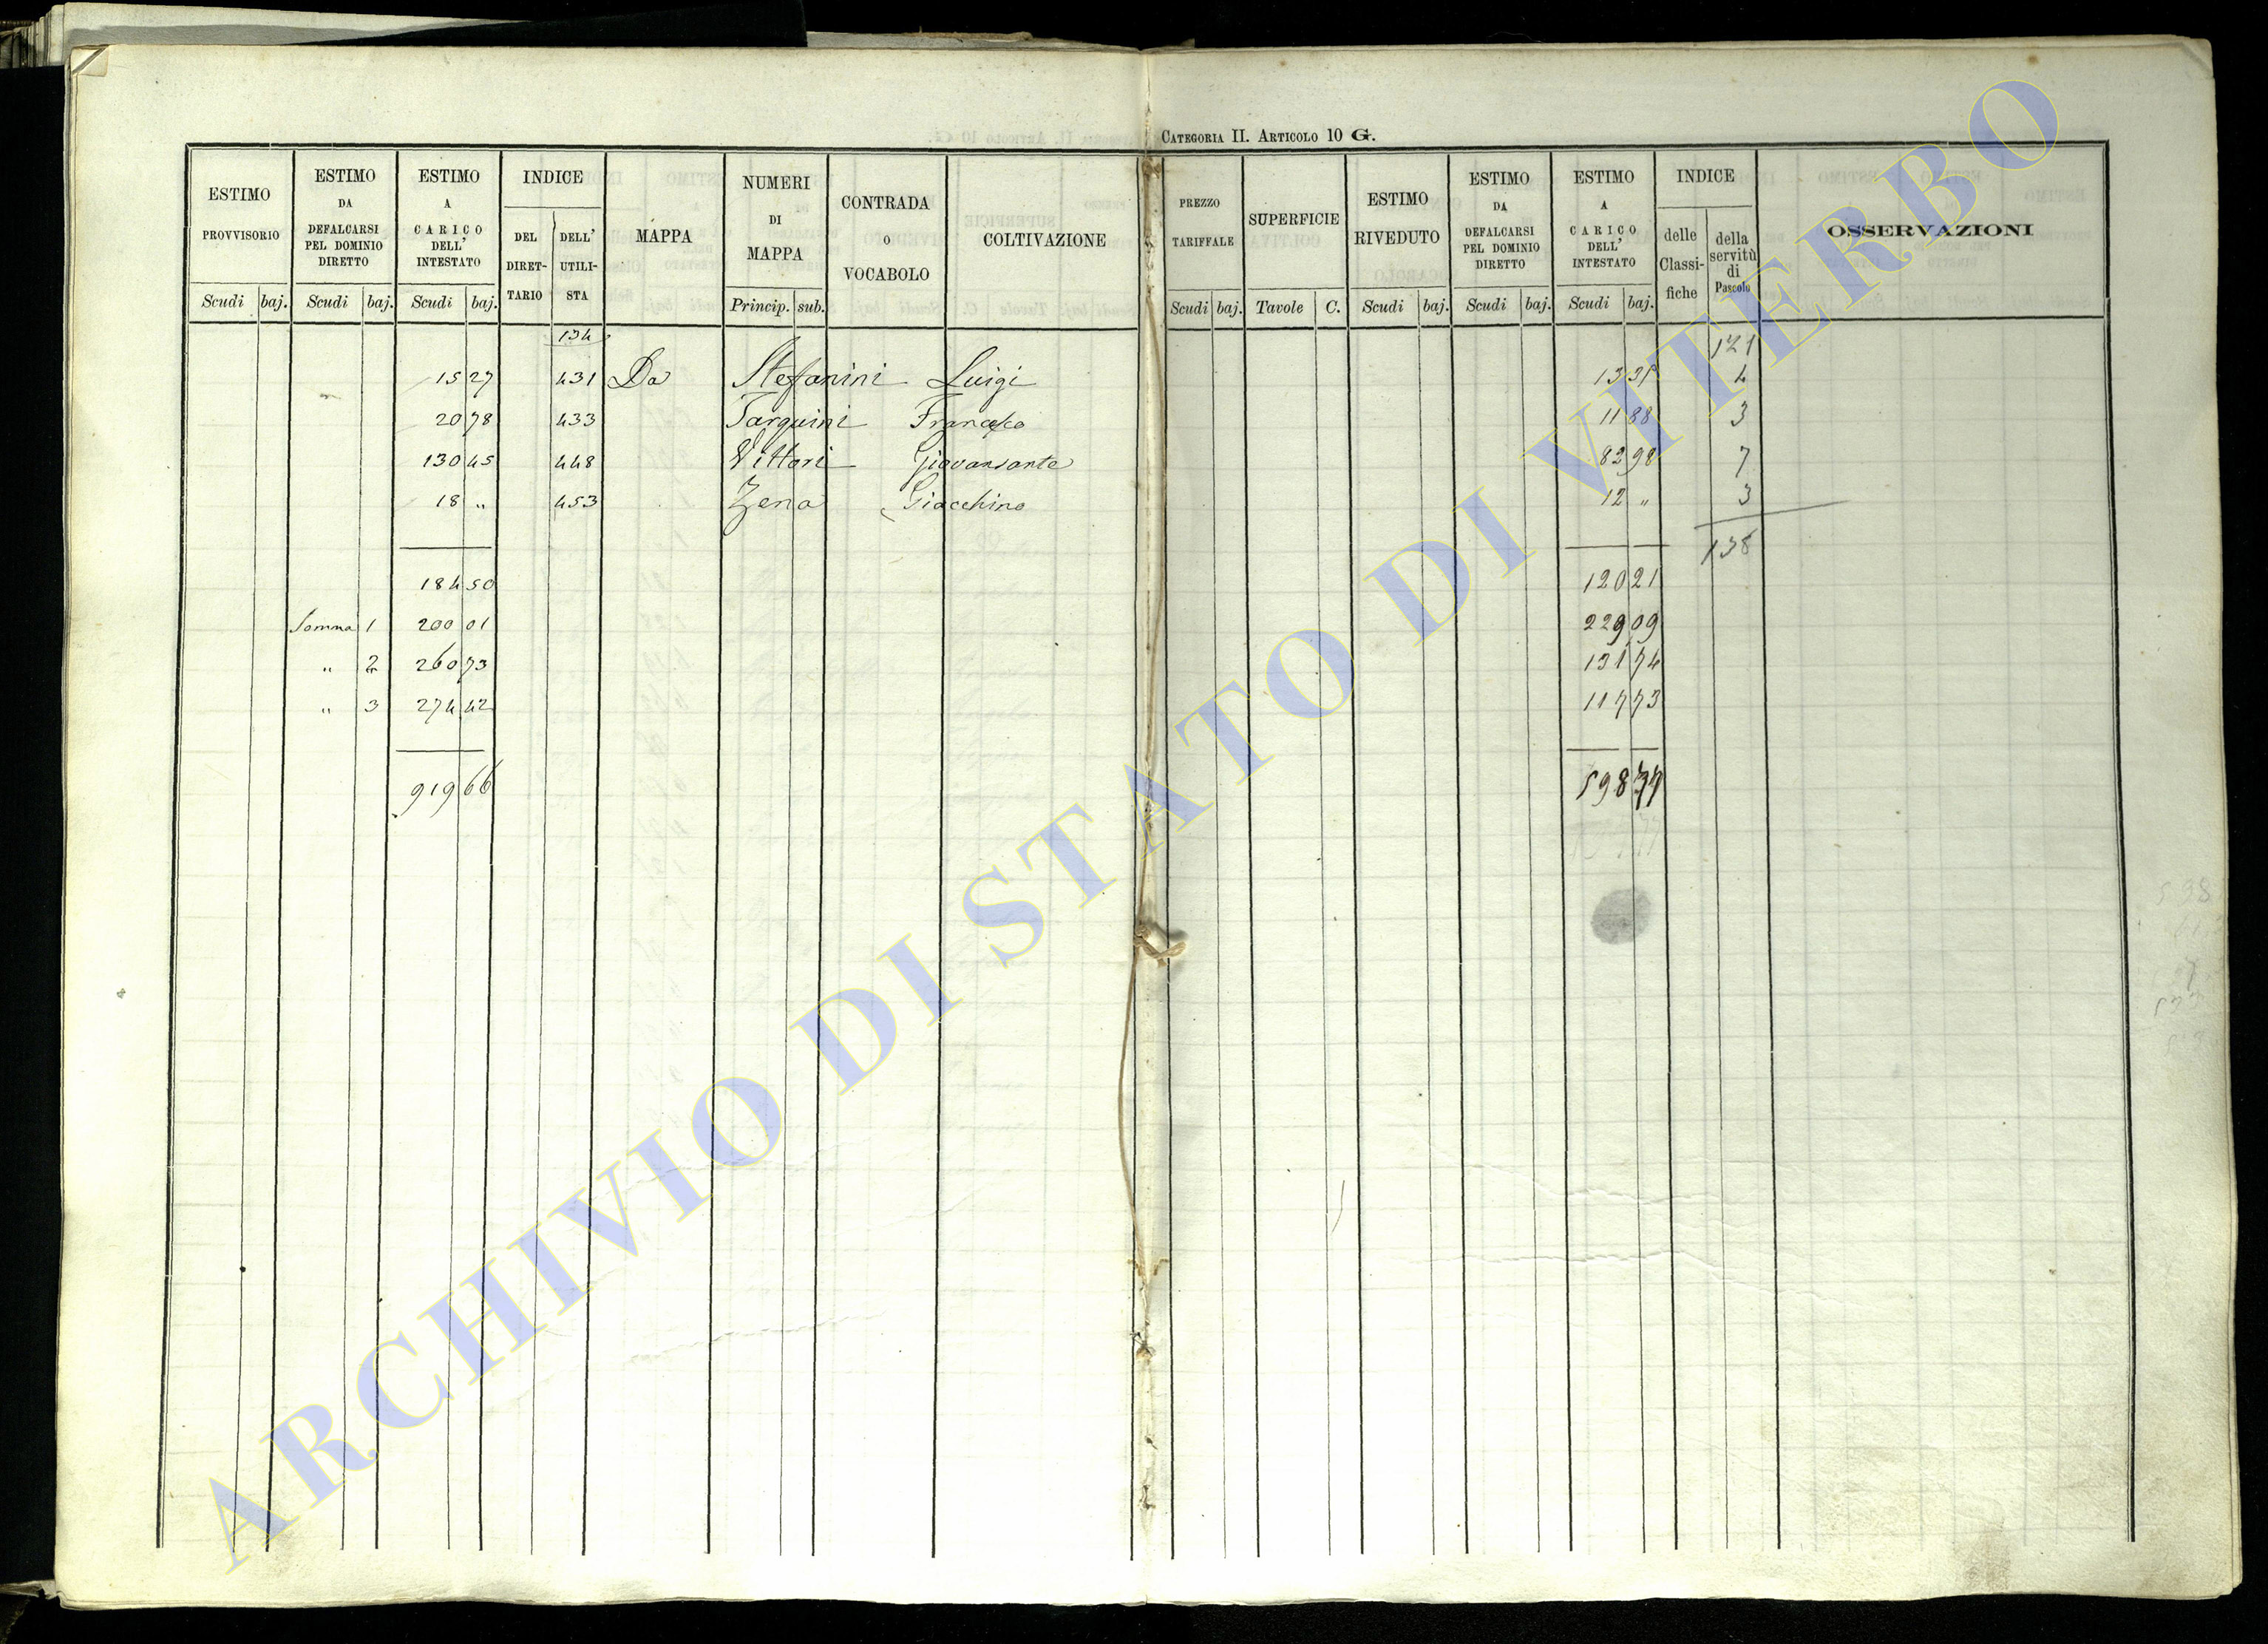 CATEGORIA II. ARTICOLO 10 G.
ESTIMO PROVVISORIO Scudi baj.
ESTIMO DA DEFALCARSI PEL DOMINIO DIRETTO Scudi baj.
ESTIMO A CARICO DELL' INTESTATO Scudi baj.
INDICE DEL DIRET-TARIO DELL' UTILI-STA
MAPPA
NUMERI DI MAPPA Princip. sub.
CONTRADA O VOCABOLO
COLTIVAZIONE
PREZZO TARIFFALE Scudi baj.
SUPERFICIE Tavole C.
ESTIMO RIVEDUTO Scudi baj.
ESTIMO DA DEFALCARSI PEL DOMINIO DIRETTO Scudi baj.
ESTIMO A CARICO DELL' INTESTATO Scudi baj.
INDICE delle Classi-fiche della servitù di Pascolo
OSSERVAZIONI
134 121
15 27 431 Da Stefanini Luigi 13 35 4
20 78 433 Tarquini Francesco 11 88 3
130 45 448 Vittori Giovansante 82 98 7
18 " 453 Zena Giacchino 12 " 3
138
184 50 120 21
Somma 1 200 01 229 09
" 2 260 73 131 74
" 3 274 42 117 73
919 66 598 77
ARCHIVIO DI STATO DI VITERBO